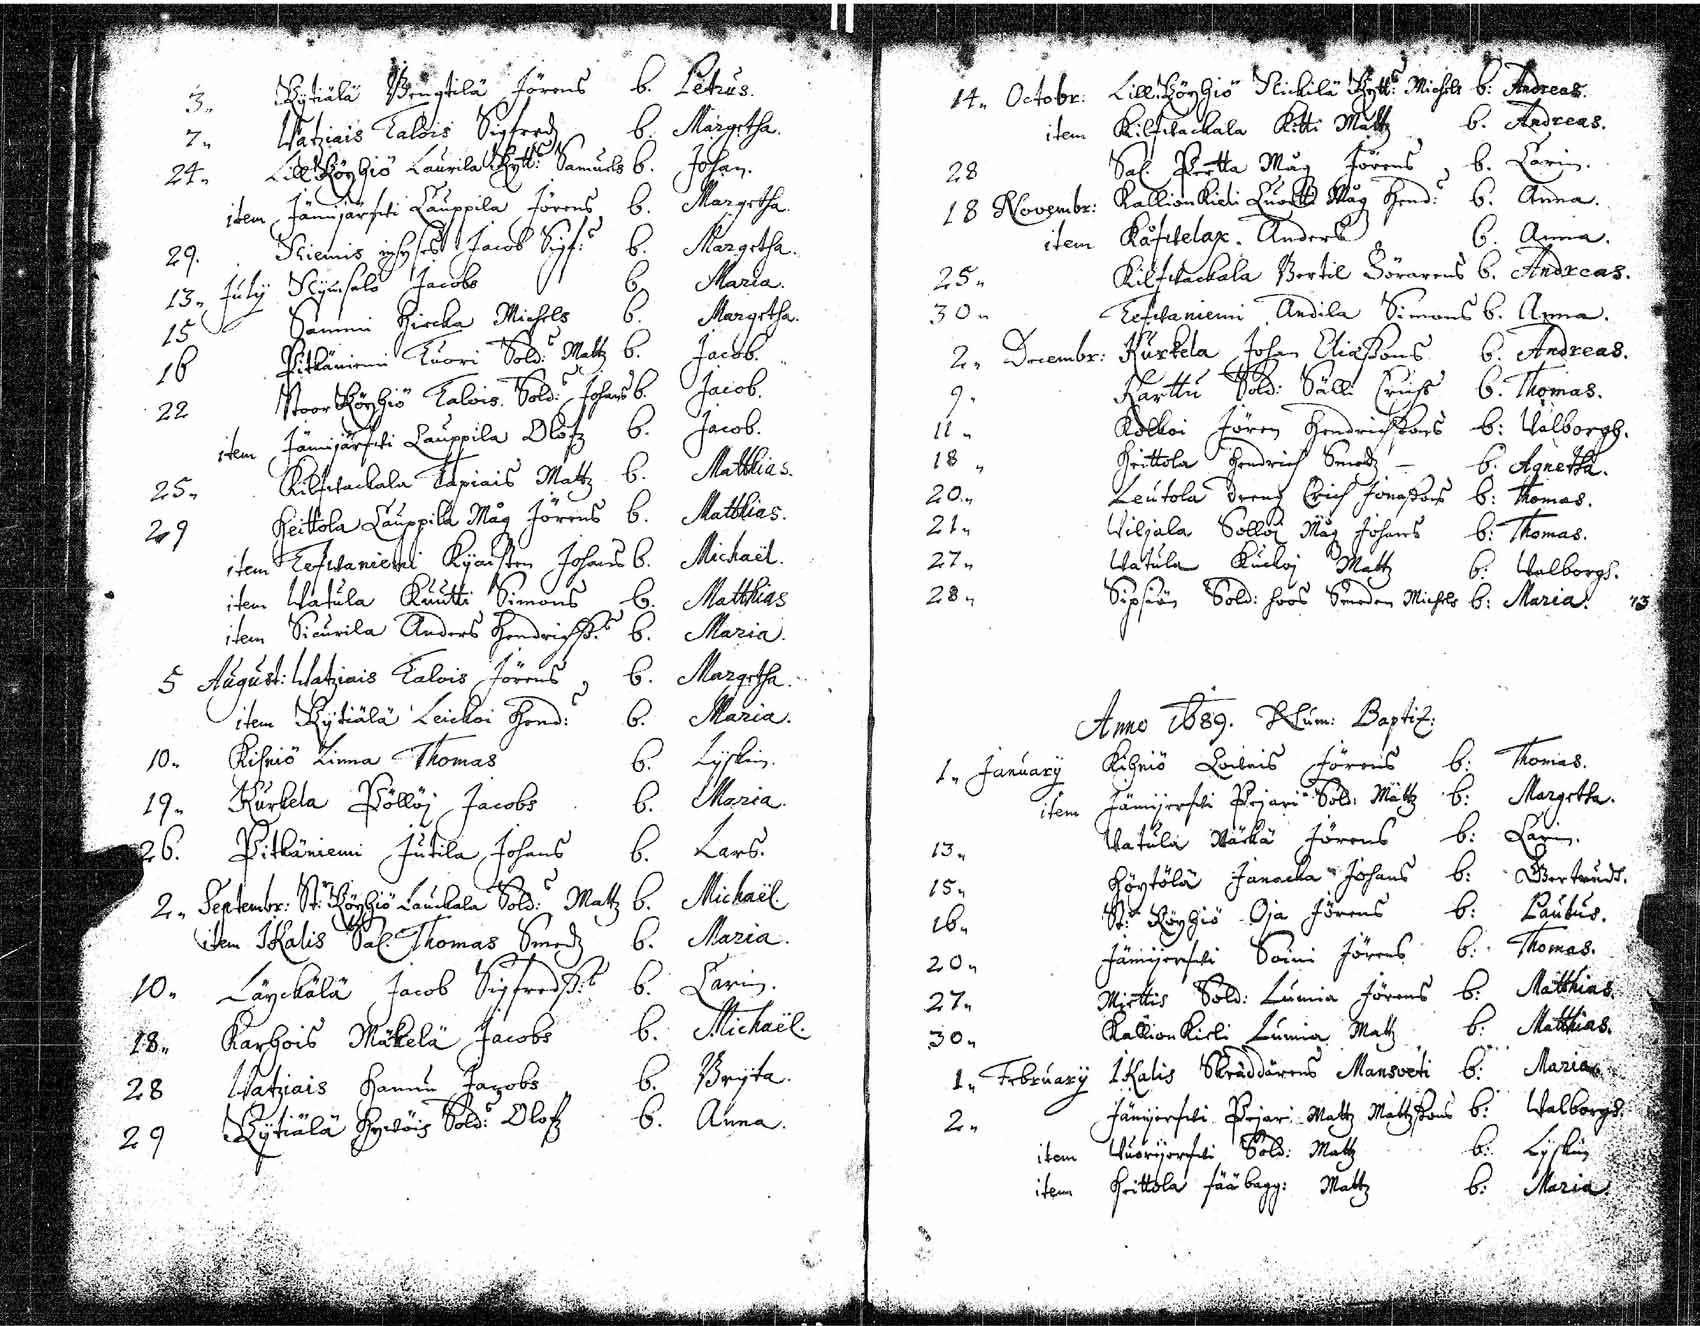 3„ Kytiälä Bengtilä Jörens b. Petrus.
7„ Watziais Talois Sigfredz b. Margetha.
24„ Lill Röyhiö Laurila Rytt: Samuels b. Johan.
item Jämijärfwi Lauppila Jörens b. Margetha.
29. Niemis inhyses Jacob Sigf: b. Margetha.
13„ July Jacobs b. Maria.
15 Sammi Michels b. Margetha.
16 Pitkäniemi Kuori Sold: Mattz b. Jacob.
22 Stoor Röyhiö Talois Sold: Johans b. Jacob.
item Jämijärfwi Lauppila Olofz b. Jacob.
25„ Kilfwackala Tapiais Mattz b. Matthias.
29 Heittola Lauppila Måg Jörens b. Matthias.
item Lefwaniemi Johans b. Michaël.
item Watula Kuutti Simons b. Matthias
item Sicurila Anders Hendrichss: b. Maria.
5 August: Watziais Talois Jörens b. Margetha.
item Kytiälä Leickoi Hend: b. Maria.
10„ Kihniö Linna Thomas b. Lysken.
19„ Kurkela Pöllöj Jacobs b. Maria.
26. Pitkäniemi Jutila Johans b. Lars.
2„ Septembr: St: Röyhiö Lauckala Sold: Mattz b. Michaël.
item IKalis Sal. Thomas Smedz b. Maria.
10„ Läyckälä Jacob Sigfredss: b. Carin.
18„ Karhois Mäkelä Jacobs b. Michaël.
28 Watziais Hannu Jacobs b. Bryta.
29 Kytiälä Hywöis Sold: Olofz b. Anna.
14„ Octobr: Lill Röyhiö Nickilä Rytt: Michels b: Andreas.
item Kilfwackala Kitti Mattz b. Andreas.
28 Sal. Pertta Måg Jörens b. Carin.
18 Novembr: Kallion Kieli Måg Hend: b. Anna.
item Käfwelax. Anders b. Anna.
25„ Kilfwackala Bertil Görarens b. Andreas.
30„ Lefwaniemi Andila Simons b. Anna.
2„ Decembr: Kurkela Johan Eliæssons b. Andreas.
9„ Karttu Sold: Sälli Erichs b. Thomas.
11„ Kolkoi Jören Hendrichssons b: Walborgh.
18„ Heittola Hendrich Smedz – b. Agnetha.
20„ Leutola dreng Erich Jönassons b: Thomas.
21„ Viljala Solloj Måg Johans b: Thomas.
27„ Watula Kuckoj Mattz b: Walborgh.
28„ Sipsiön Sold: hoos Smeden Michels b: Maria. 73
Anno 1689. Num: Baptiz:
1„ January Kihniö Jörens b: Thomas.
item Jämijerfwi Pejari Sold: Mattz b: Margetha.
13„ Watula Jörens b: Carin.
15„ Höytölä Janacka Johans b: Gertrudt.
16„ St: Röyhiö Oja Jörens b: Paulus.
20„ Jämijerfwi Soini Jörens b: Thomas.
27„ Miettis Sold: Lumia Jörens b: Matthias.
30„ Kallion Kieli Lumia Mattz b: Matthias.
1„ February IKalis Skräddarens Mansveti b: Maria
2„ Jämijerfwi Pejari Mattz Mattzsons b: Walborgh.
item Vuorijerfwi Sold: Mattz b: Lysken
item Heittola Mattz b: Maria.